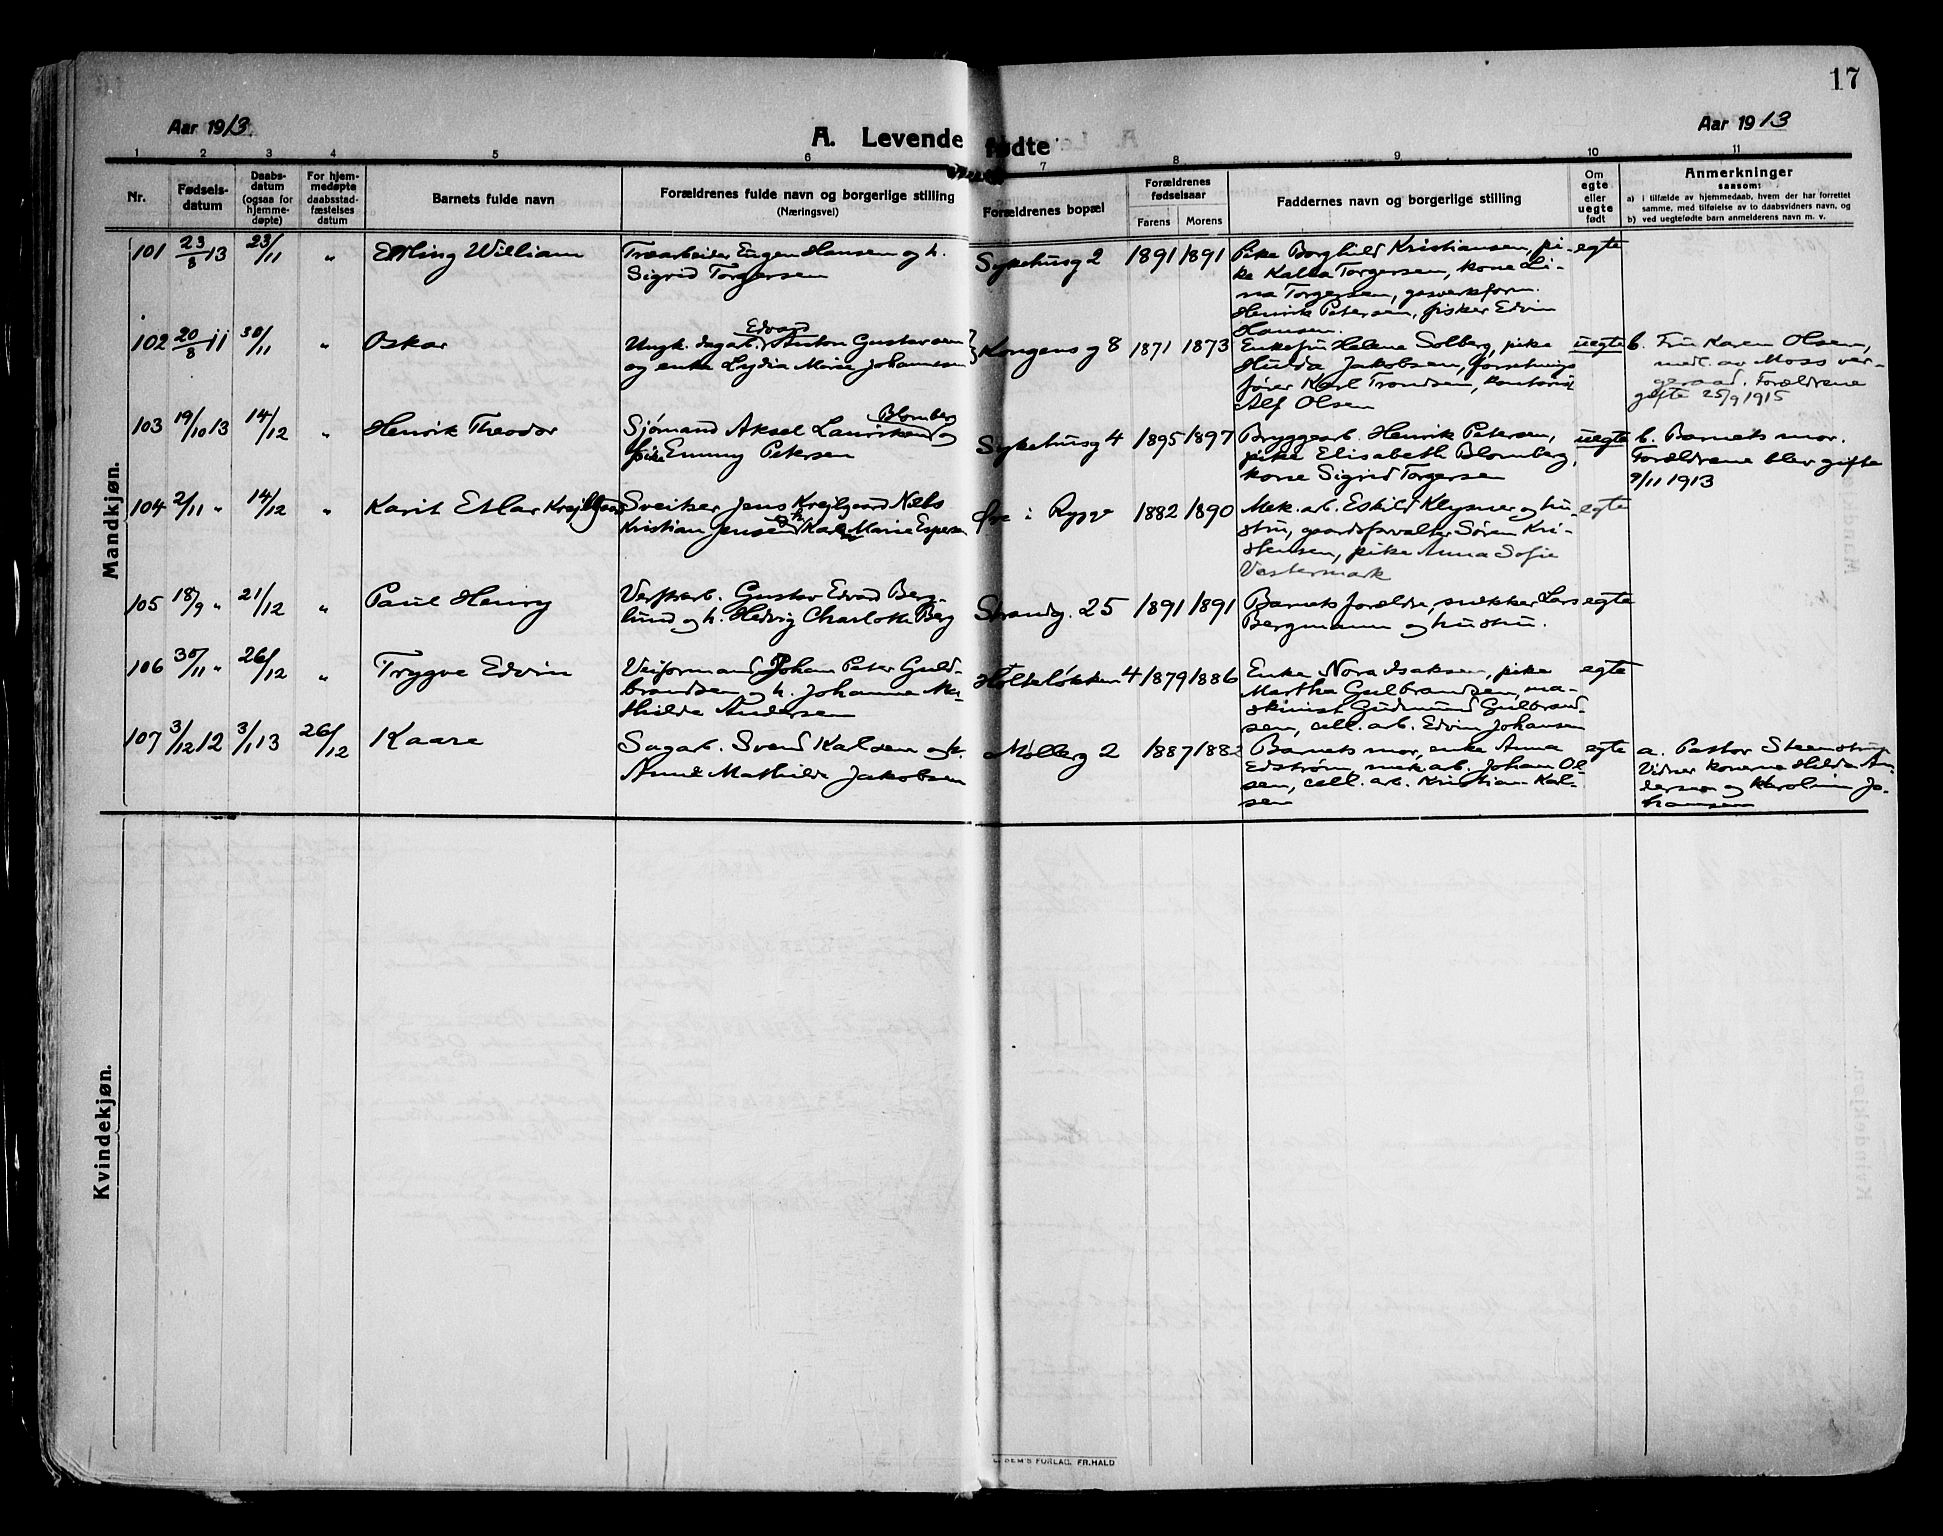 17
Aar 1913.
A. Levende fødte
Aar 1913
1 2 3 4 5 6 7 8 9 10 11
Nr.
Fødsels-
datum
Daabs-
datum
(ogsaa for
hjemme-
døpte)
For hjem-
medøpte
daabsstad-
fæstelses
datum
Barnets fulde navn
Forældrenes fulde navn og borgerlige stilling
(Næringsvei)
Forældrenes bopæl
Forældrenes
fødselsaar
Farens Morens
Faddernes navn og borgerlige stilling
Om
egte
eller
uegte
født
Anmerkninger
saasom:
a) i tilfælde av hjemmedaab, hvem der har forrettet
samme, med tilføielse av to daabsvidners navn, og
b) ved uegtefødte barn anmelderens navn m. v.
Mandkjøn.
101 23/8 13 23/11 " Erling William Træarbeider Eugen Hansen og h. Sykehusg 2 1891 1891 Pike Borghild Kristiansen, pi- egte
Sigrid Torgersen ke Kalla Torgersen, kone Li-
na Torgersen, gasverkform.
Henrik Petersen, fisker Edvin
Hansen.
102 20/8 11 30/11 " Oskar Ungk. dagarb. Edvard Anton Gustavsen Kongens g 8 1871 1873 Enkefru Helene Solberg, pike uegte b. Fru Karen Olsen,
og enke Lydia Marie Johannesen Hulda Jakobsen, forretnings medl. av Moss ver-
fører Karl Trondsen, kontorist geraad. Forældrene
Alf Olsen gifte 25/9 1915
103 19/10 13 14/12 " Henrik Theodor Sjømand Aksel Lauritsen Blomberg og Sykehusg 4 1895 1897 Bryggearb. Henrik Petersen, uegte b. Barnets mor.
pike Emmy Petersen pike Elisabeth Blomberg, Forældrene blev gifte
kone Sigrid Torgersen 9/11 1913
104 2/11 " 14/12 " Karit Etlar Krejlgaard Sveitser Jens Krejlgaard Niels Øre i Rygge 1882 1890 Mek. arb. Eskild Klysner og hu- egte
Kristian Jensen og h. Karen Marie Espersen stru, gaardsforvalter Søren Kri-
stensen, pike Anna Sofie
Vestermark
105 18/9 " 21/12 " Paul Henry Verftsarb. Gustav Edvard Berg- Strandg. 25 1891 1891 Barnets forældre, snekker Lars egte
lund og h. Hedvig Charlotte Berg Bergmann og hustru.
106 30/11 " 26/12 " Trygve Edvin Veiformand Johan Peter Guld- Holteløkken 4 1879 1886 Enke Nora Isaksen, pike egte
brandsen og h. Johanne Ma- Martha Gulbrandsen, ma-
thilde Andersen skinist Gudmund Gulbrand-
sen, cell. arb. Edvin Johansen
107 3/12 12 3/1 13 26/12 Kaare Sagarb. Svend Karlsen og h. Mølleg 2 1887 1882 Barnets mor, enke Anna egte a. Pastor Steenstrup
Anne Mathilde Jakobsen Edstrøm, mek. arb. Johan Ol- Vidner konerne Hilda An-
sen, cell. arb. Kristian Karl- dersen og Karoline Jo-
sen hansen
Kvindekjøn.
SEM'S FORLAG, FR.HALD